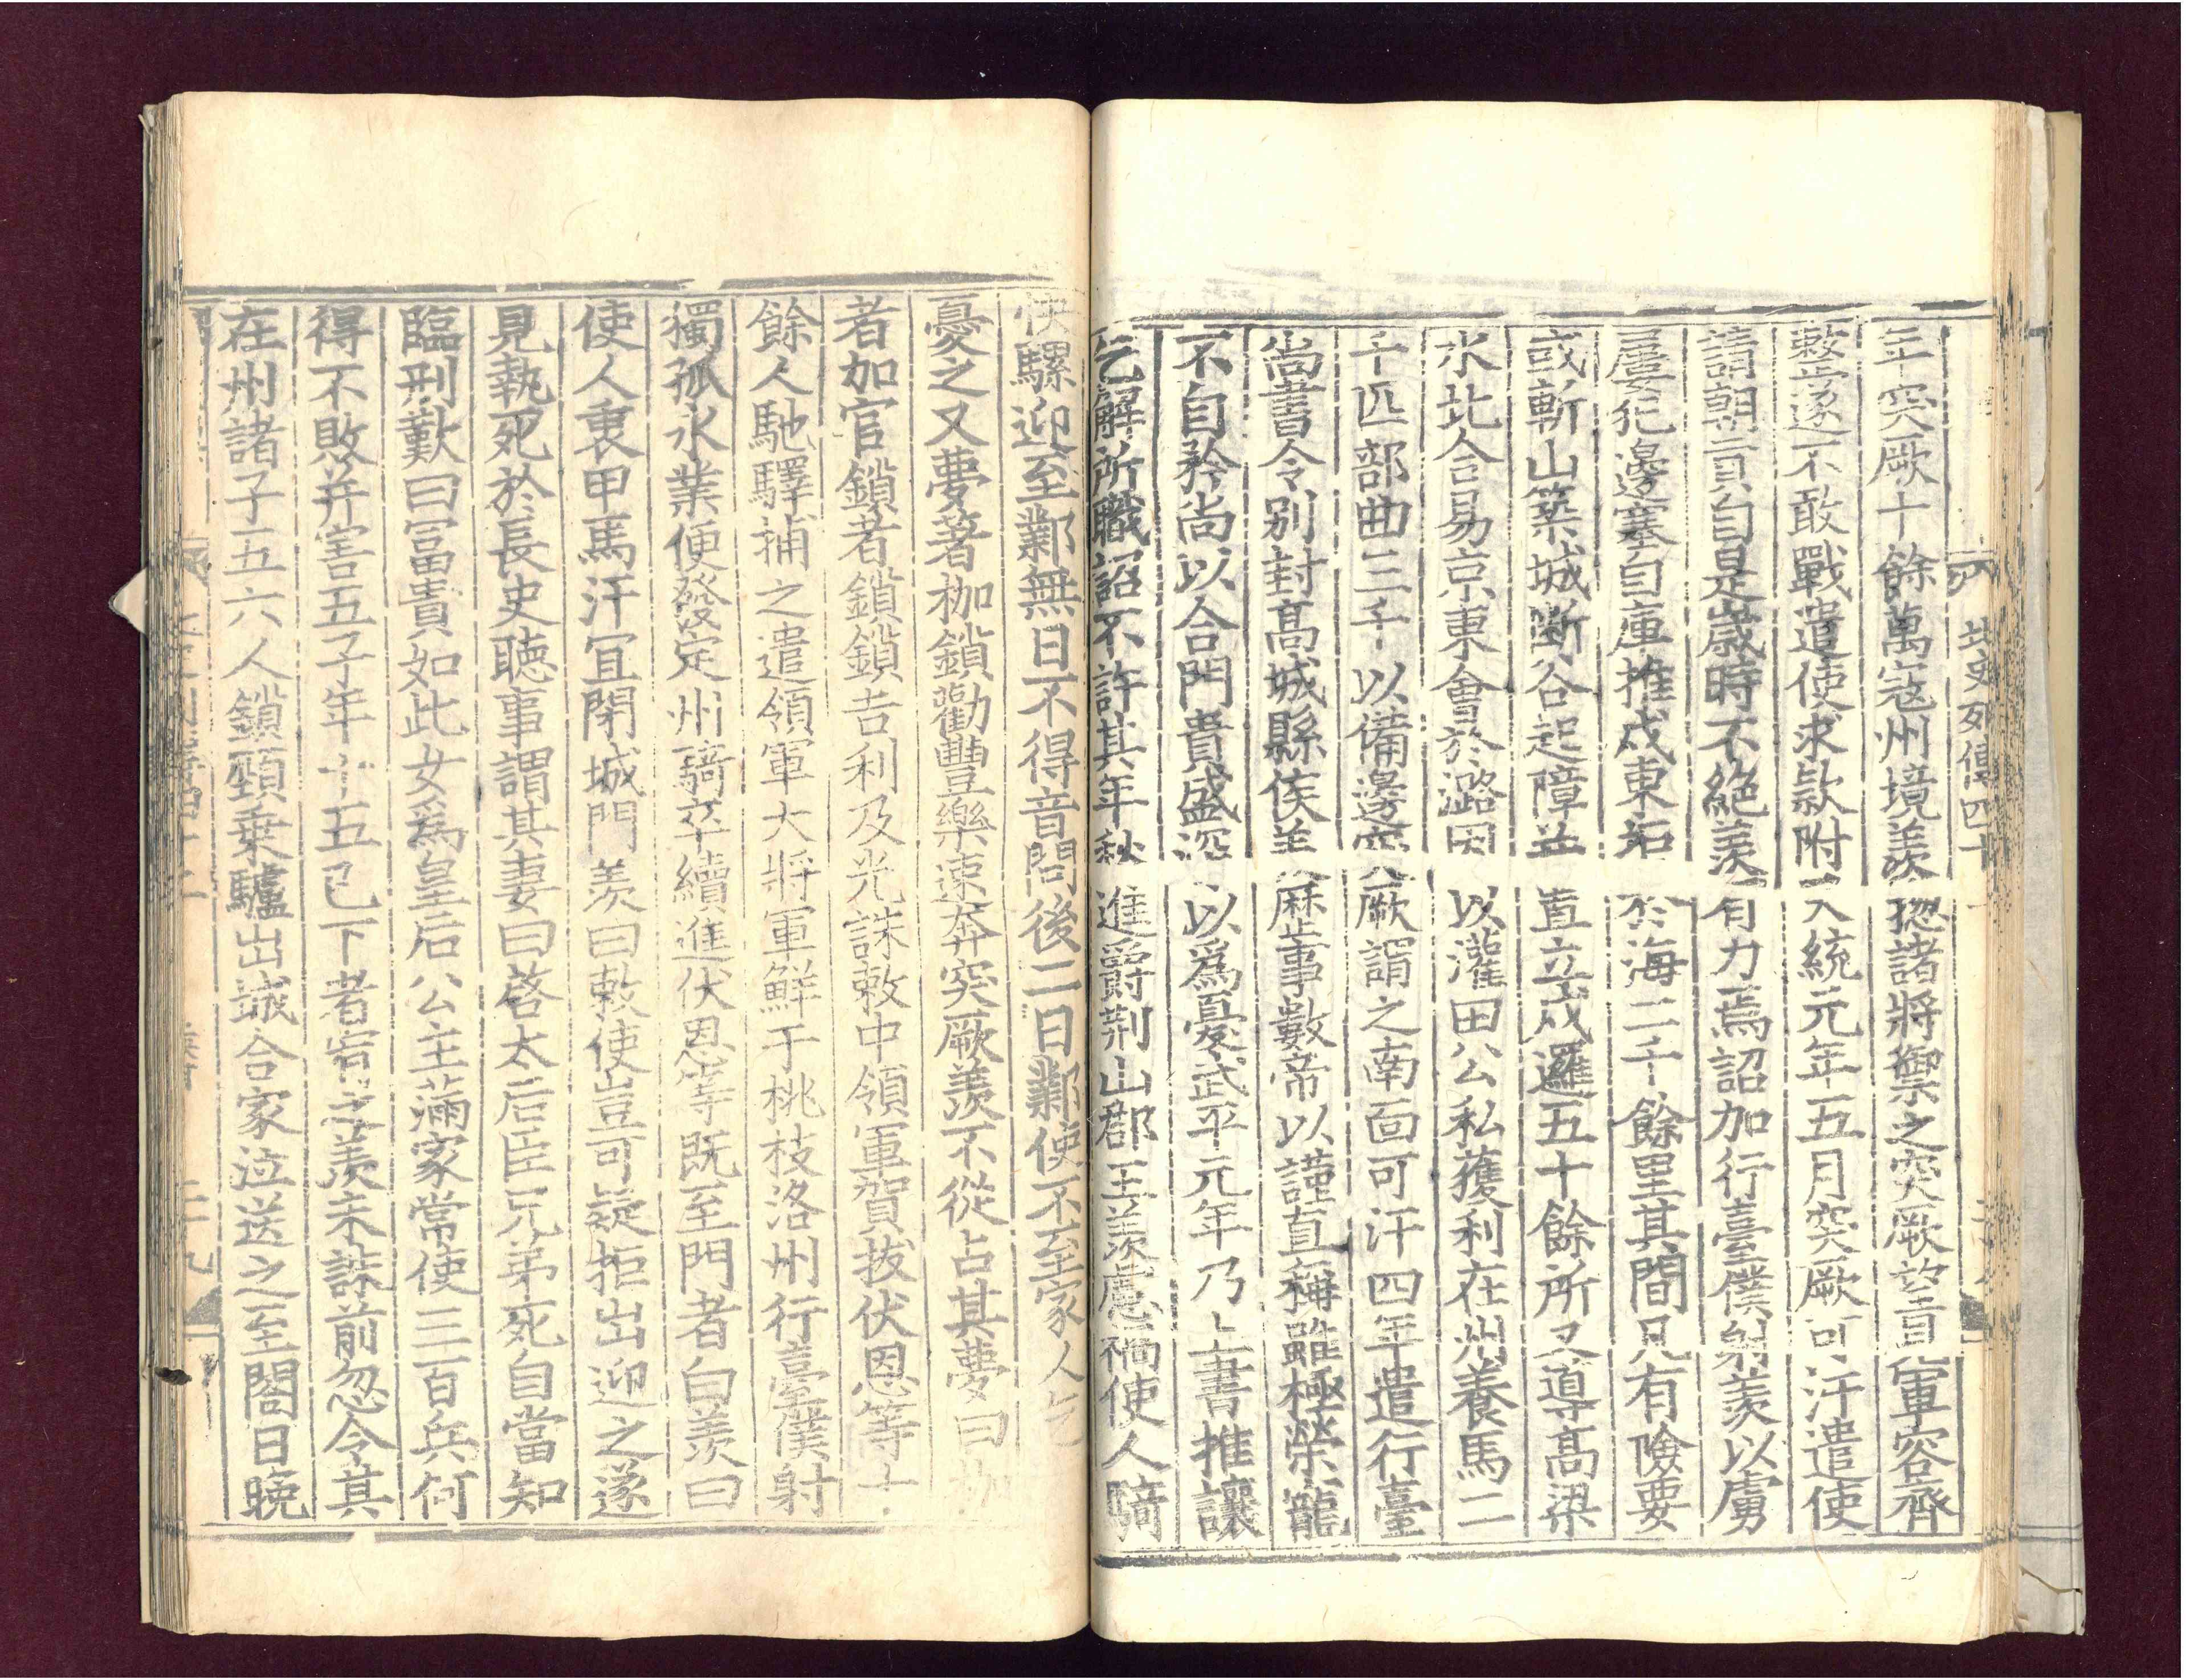 北史列傳四十
年突厥十餘萬寇州境羨揔諸將禦之突厥望見軍容齊
整遂不敢戰遣使求款附天統元年五月突厥可汗遣使
請朝貢自是歲時不絶羨有力焉詔加行臺僕射羨以虜
屢犯邊塞自庫推戍東拒於海二千餘里其間凡有險要
或斬山築城斷谷起障並置立戍邏五十餘所又導高梁
水北合易京東會於潞因以灌田公私獲利在州養馬二
千匹部曲三千以備邊突厥謂之南面可汗四年遣行臺
尚書令别封高城縣侯羨歷事數帝以謹直稱雖極榮寵
不自矜尚以合門貴盛深以爲憂武平元年乃上書推讓
乞解所職詔不許其年秋進爵荆山郡王羨慮禍使人騎
快騾迎至鄴無日不得音問後二日鄴使不至家人乞
憂之又夢著枷鎖勸豐樂速奔突厥羨不從占其夢曰枷
者加官鎖者鎖鎖吉利及光誅敕中領軍賀拔伏恩等十
餘人馳驛捕之遣領軍大將軍鮮于桃枝洛州行臺僕射
獨孤永業便發定州騎卒續進伏恩等既至門者白羨曰
使人衷甲馬汗宜閉城門羨曰敕使豈可疑拒出迎之遂
見執死於長史聽事謂其妻曰啓太后臣兄弟死自當知
臨刑歎曰富貴如此女爲皇后公主滿家常使三百兵何
得不敗并害五子年十五已下者宥之羨未誅前忽令其
在州諸子五六人鎖頸乗驢出城合家泣送之至閤日晚